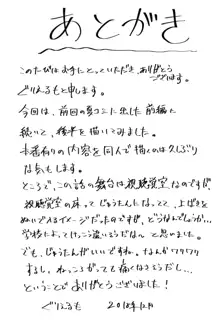 あとがき
このたびはお手にとっていただき、ありがとう
ございます。
ぐりえるもと申します。
今回は、前回の夏コミに出した前編に
続いて、後半を描いてみました。
本番有りの内容を同人で描くのは久しぶり
な気もします。
ところで、この話の舞台は視聴覚室なのですが、
視聴覚室の床って、じゅうたんになってて、上ばきを
ぬいで入るイメージだったのですが、どうなんでしょうか…。
学校によってけっこう違いそうだな、と思いました。
でも、じゅうたんがいいですね。なんかワクワク
するし、ねっころがっても痛くなさそうだし…
ということでありがとうございました！
ぐりえるも 2018.12月